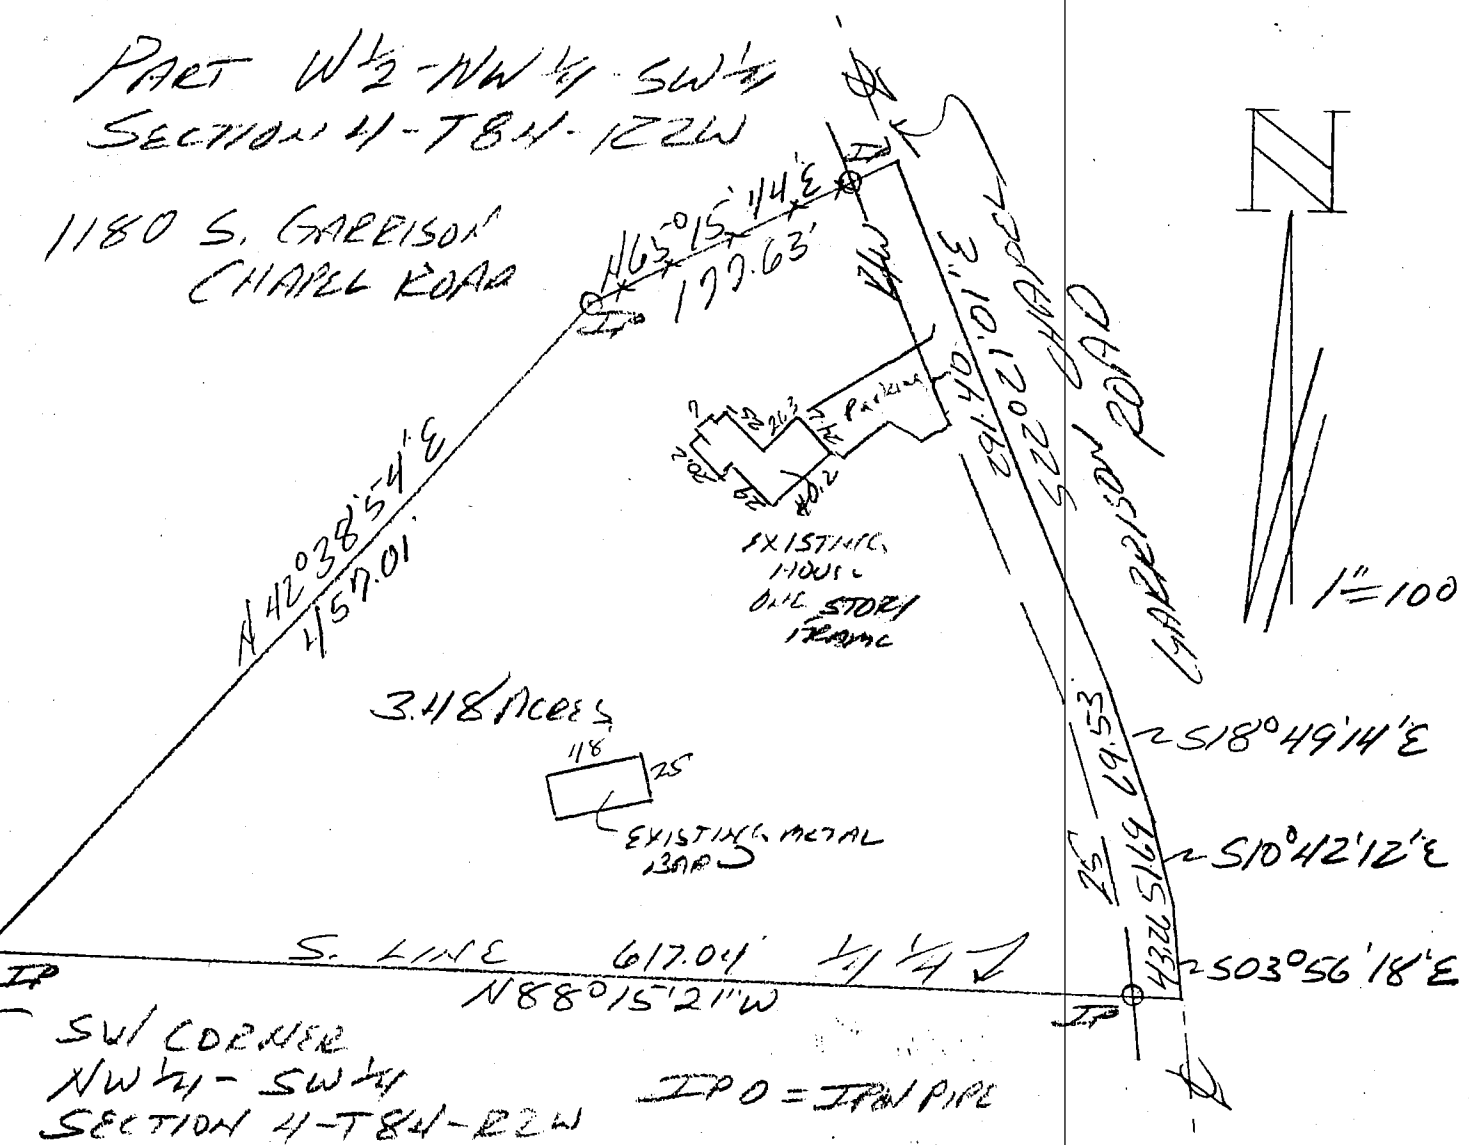 PART W 1/2 - NW 1/4 - SW 1/4
SECTION 4 - T8N - R2W
1180 S. GARRISON
CHAPEL ROAD
N
1"=100
IP
N65°15'44"E
177.63'
IP
R/W
N42°38'54"E
457.01'
S22°02'01"E
291.40
GARRISON CHAPEL
ROAD
Parking
7
26.3
24.2
20.2
29
40.2
EXISTING
HOUSE
ONE STORY
FRAME
3.48 ACRES
48'
25'
EXISTING METAL
BARN
69.53
S18°49'14"E
51.69
S10°42'12"E
25
43.26
S03°56'18"E
S. LINE 617.04' 1/4 1/4
N88°15'21"W
IP
IP
SW CORNER
NW 1/4 - SW 1/4
SECTION 4-T8N-R2W
IP O = IRON PIPE